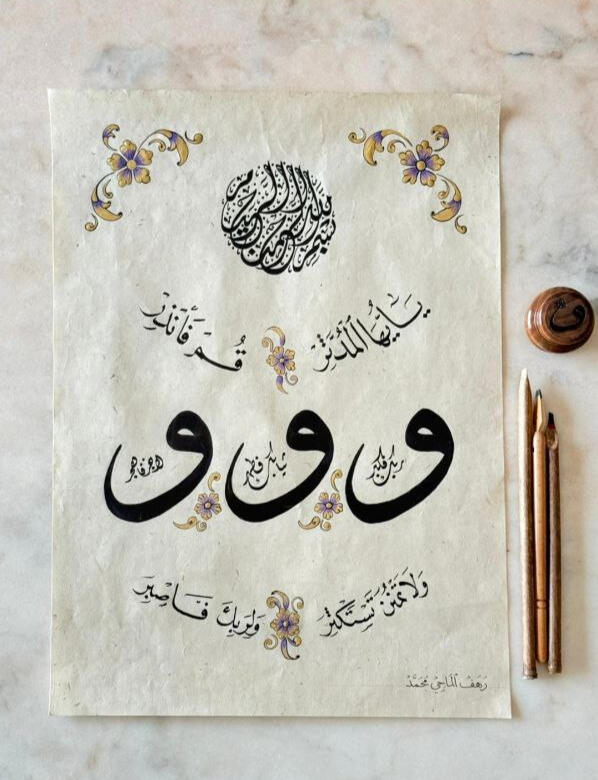 بسم الله الرحمن الرحيم
يَـٰٓأَيُّهَا ٱلْمُدَّثِّرُ
قُمْ فَأَنذِرْ
و ربك فكبر
و ثيابك فطهر
و الرجز فاهجر
وَلَا تَمْنُن تَسْتَكْثِرُ
وَلِرَبِّكَ فَٱصْبِرْ
رهف الماحي محمد
و